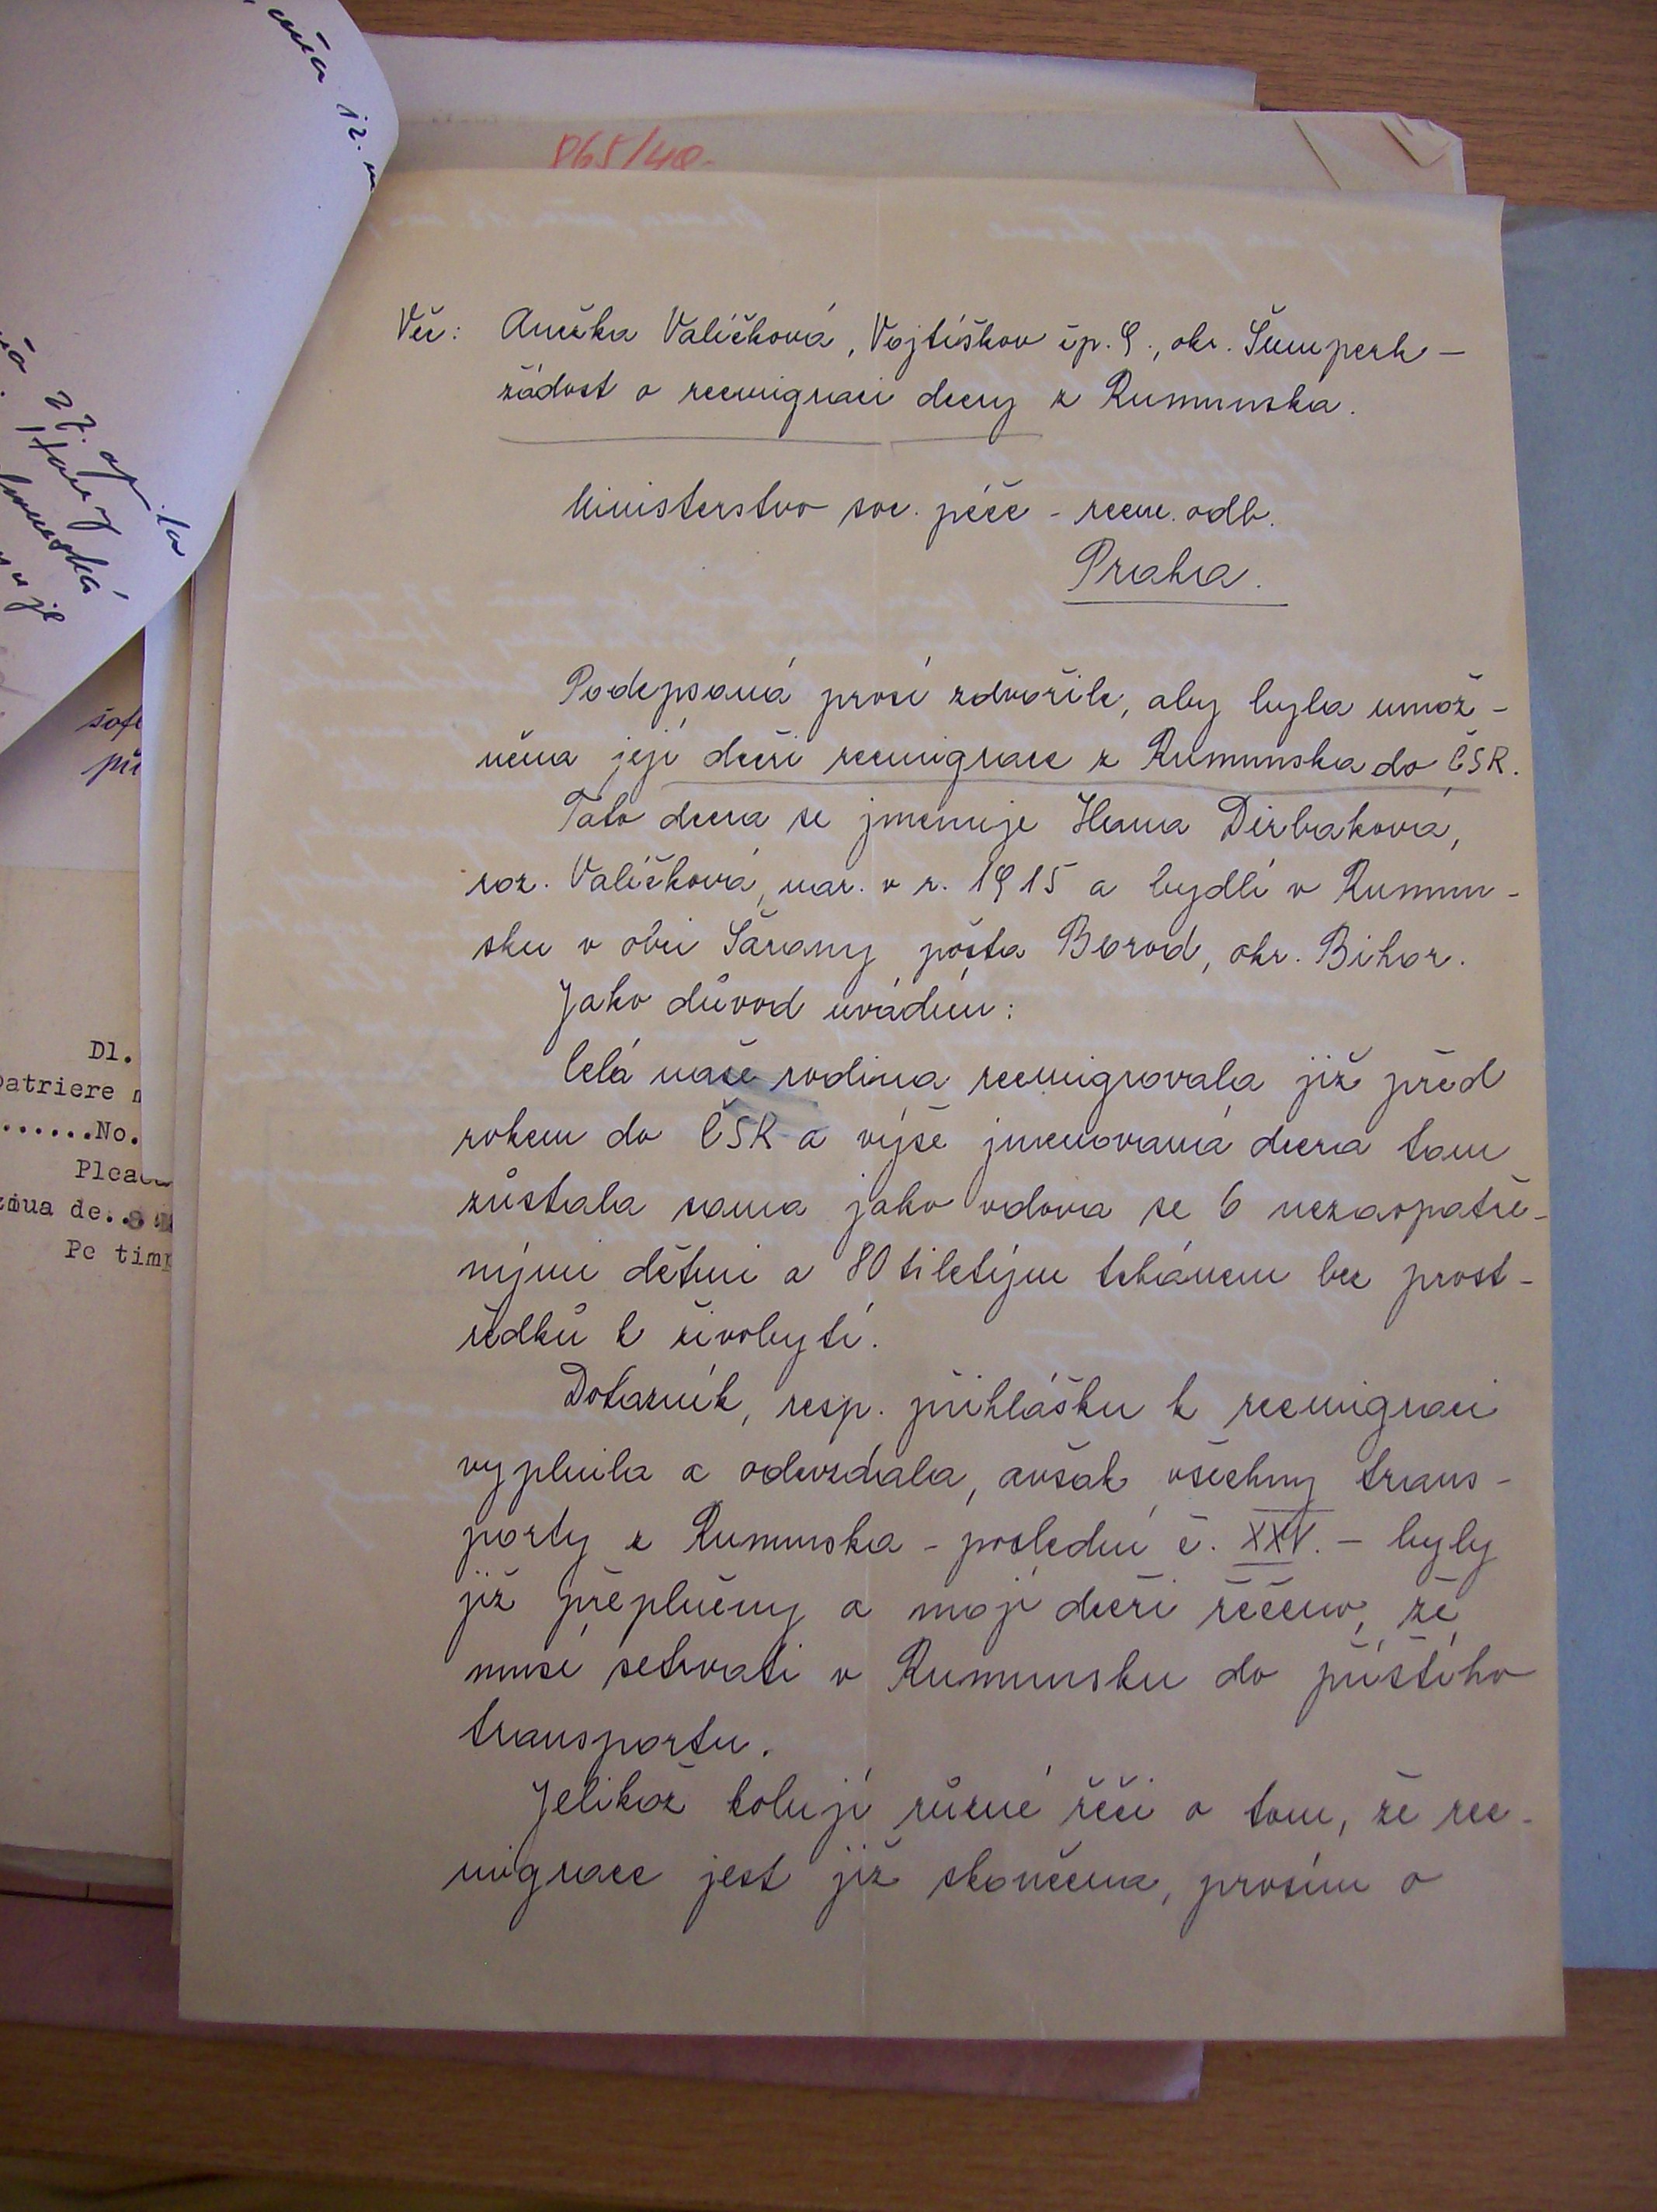 věa 12.
27. apríla
je
865/48.
Věc: Anežka Valíčková, Vojtíškov čp. 9., okr. Šumperk –
žádost o reemigraci dcery z Rumunska.
Ministerstvo soc. péče – reem. odb.
Praha.
Podepsaná prosí zdvořile, aby byla umož-
něna její dceři reemigrace z Rumunska do ČSR.
Tato dcera se jmenuje Hana Dirbaková,
roz. Valíčková, nar. v r. 1915 a bydlí v Rumun-
sku v obci Šarany, pošta Borod, okr. Bihor.
Jako důvod uvádím:
Celá naše rodina reemigrovala již před
rokem do ČSR a výše jmenovaná dcera tam
zůstala sama jako vdova se 6 nezaopatře-
nými dětmi a 80 tiletým tchánem bez prost-
ředků k živobytí.
Dotazník, resp. přihlášku k reemigraci
vyplnila a odevzdala, avšak všechny trans-
porty z Rumunska – poslední č. XXV. – byly
již přeplněny a mojí dceři řečeno, že
musí setrvati v Rumunsku do příštího
transportu.
Jelikož kolují různé řeči o tom, že ree-
migrace jest již skončena, prosím o
šofe
při
Dl.
patriere
......No.
Plea
de..
Pe timp